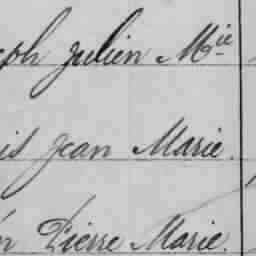 eph Julien M^ie
is Jean Marie.
n Pierre Marie.